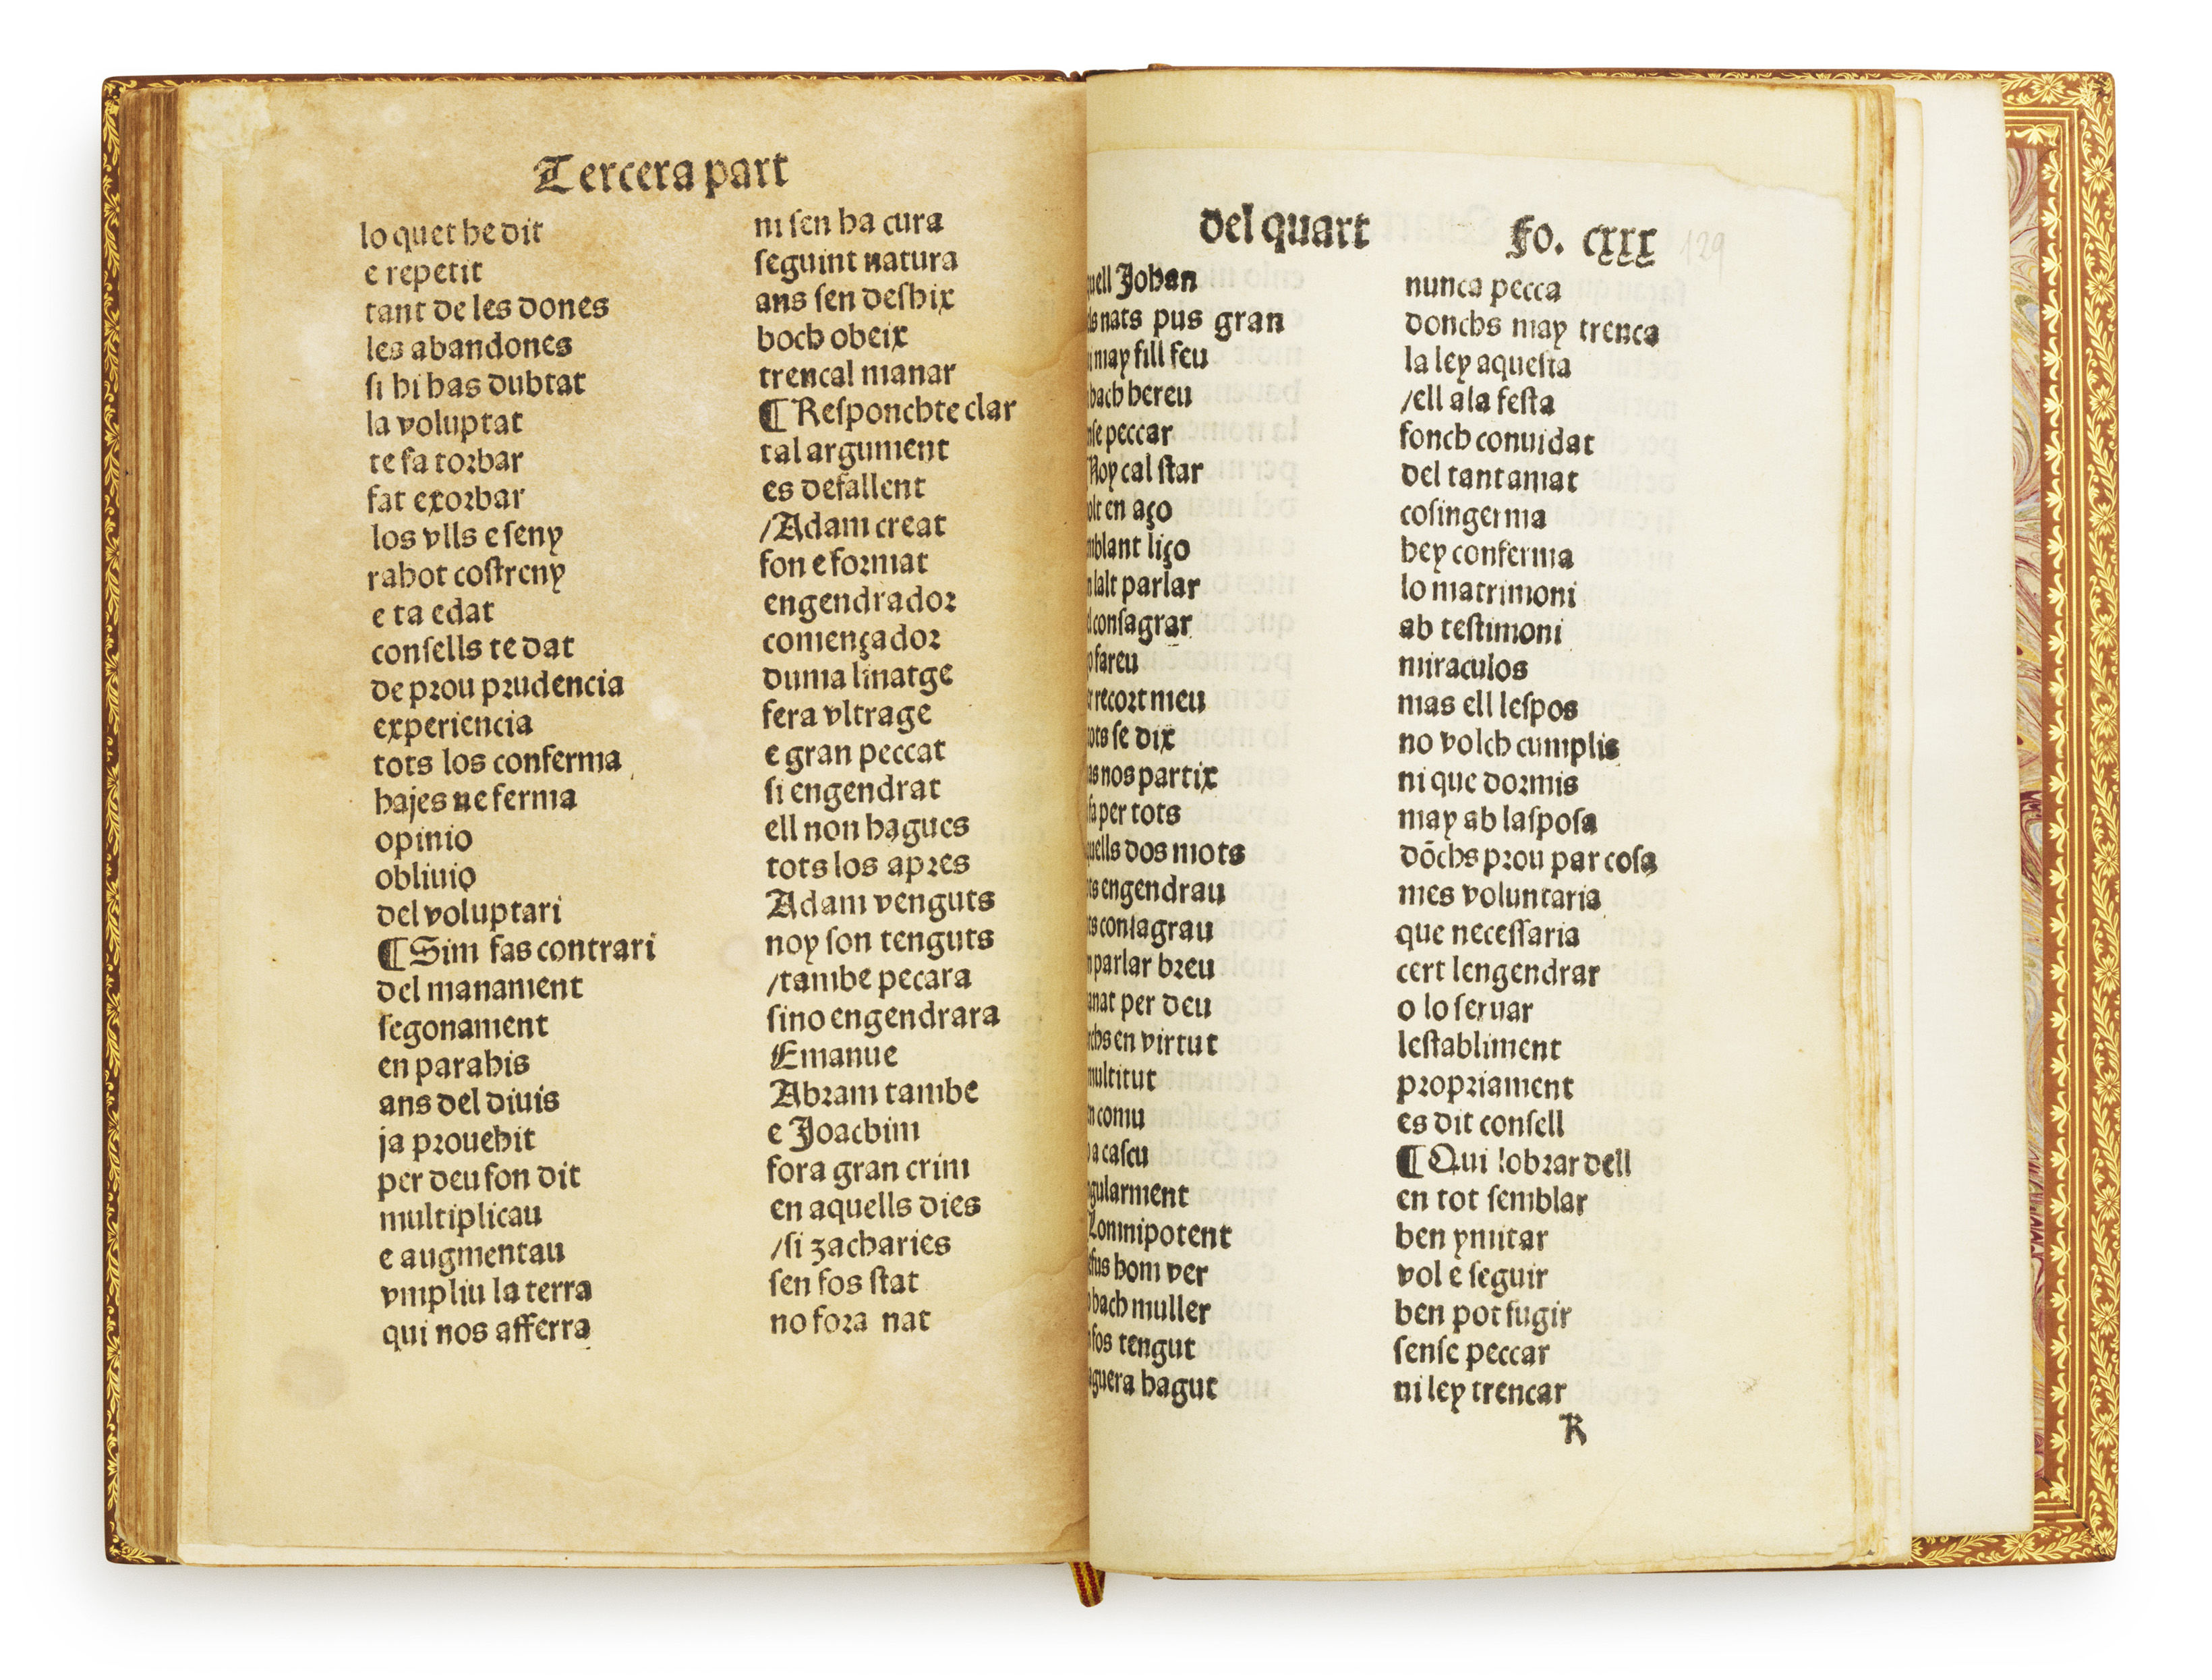 Tercera part
lo quet he dit
e repetit
tant de les dones
les abandones
si hi has dubtat
la voluptat
te fa torbar
fat exorbar
los vlls e seny
rahot costreny
e ta edat
consells te dat
de prou prudencia
experiencia
tots los conferma
hajes ne ferma
opinio
obliuio
del voluptari
¶ Sim fas contrari
del manament
segonament
en parahis
ans del diuis
ja prouehit
per deu fon dit
multiplicau
e augmentau
vmpliu la terra
qui nos afferra
ni sen ha cura
seguint natura
ans sen deshix
hoch obeix
trencal manar
¶ Responchte clar
tal argument
es defallent
/Adam creat
fon e format
engendrador
començador
duma linatge
fera vltrage
e gran peccat
si engendrat
ell non hagues
tots los apres
Adam venguts
noy son tenguts
/tambe pecara
sino engendrara
Emanue
Abram tambe
e Joachim
fora gran crim
en aquells dies
/si zacharies
sen fos stat
no fora nat
del quart fo. cxxx
129
uell Johan
ls nats pus gran
may fill feu
hach hereu
nse peccar
Noy cal star
olt en aço
mblant liço
lalt parlar
consagrar
fareu
r recort meu
ots se dix
as nos partix
fa per tots
uells dos mots
ts engendrau
ts consagrau
parlar breu
anat per deu
chs en virtut
multitut
n comu
a cascu
gularment
Lomnipotent
efus hom ver
hach muller
fos tengut
aguera hagut
nunca pecca
donchs may trenca
la ley aquesta
/ell ala festa
fonch conuidat
del tant amat
cosingerma
hey conferma
lo matrimoni
ab testimoni
miraculos
mas ell lespos
no volch cumplis
ni que dormis
may ab lasposa
dõchs prou par cosa
mes voluntaria
que necessaria
cert lengendrar
o lo seruar
lestabliment
propriament
es dit consell
¶ Qui lobrar dell
en tot semblar
ben ymitar
vol e seguir
ben pot fugir
sense peccar
ni ley trencar
R